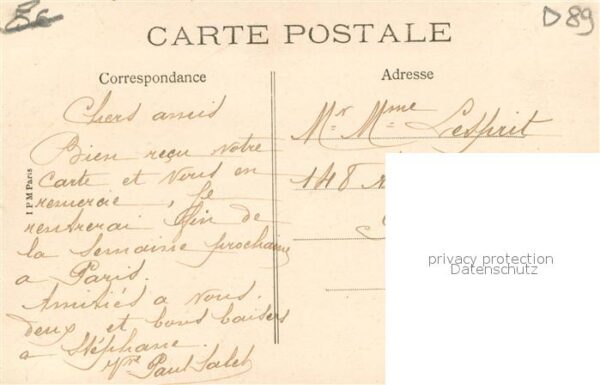 5c
D89
CARTE POSTALE
Correspondance
Chers amis
Bien reçu Votre
Carte et Vous en
remercie, Je
rentrerai fin de
la Semaine prochaine
a Paris.
Amitiés a Vous
deux et bons baisers
a Stéphane.
Paul Salet
I P M Paris
Adresse
Mr Mme Lesprit
148
privacy protection
Datenschutz